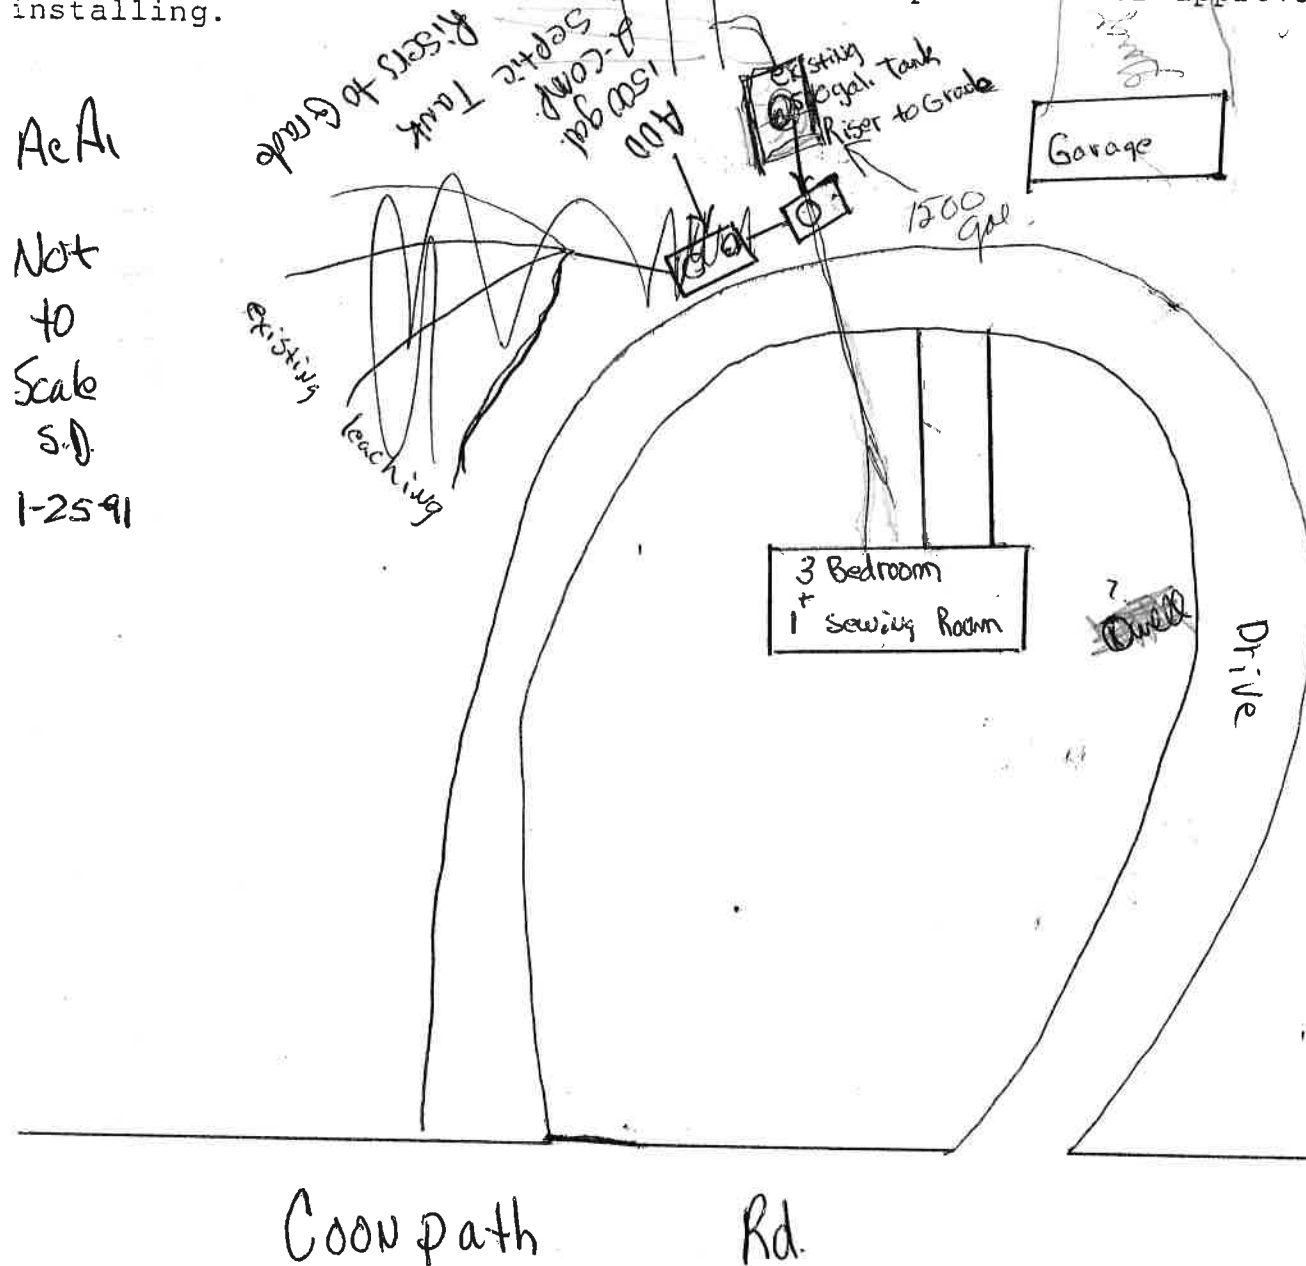 installing.
AcA1
Not
to
Scale
S.D.
1-25-91
Risers to Grade
Tank
Septic
1500 gal.
ADD
existing
gal. Tank
Riser to Grade
1500
gal.
Garage
existing
leaching
3 Bedroom
+
1 Sewing Room
?
well
Drive
Coonpath Rd.